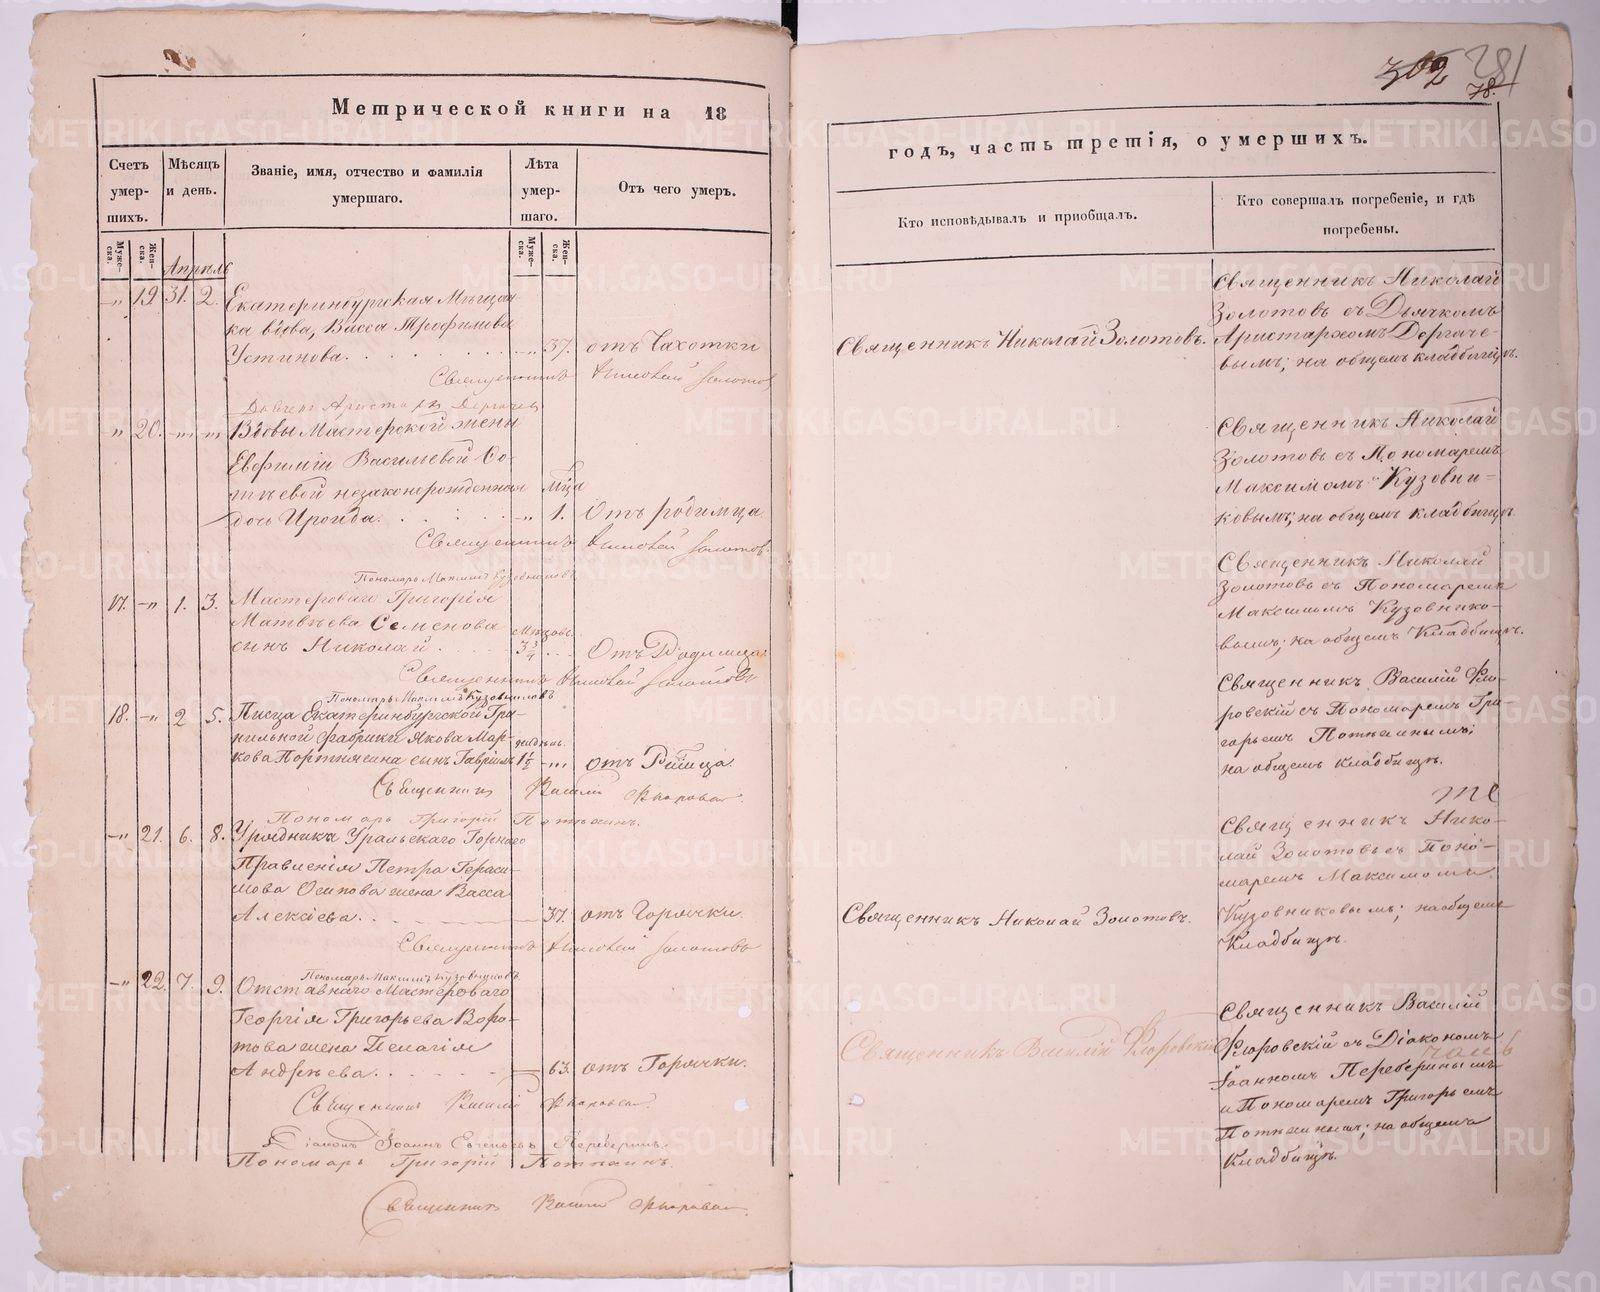 302 281
78.
Метрической книги на 18
Счетъ умер-шихъ.
Мѣсяцъ и день.
Званіе, имя, отчество и фамилія умершаго.
Лѣта умер-шаго.
Отъ чего умеръ.
Муже-ска.
Жен-ска.
Муже-ска.
Жен-ска.
Апрѣль
-„ 19 31. 2. Екатеринбургская Мѣщан
ка вдова, Васса Трофимова
Устинова. -„ 37. отъ Чахотки
Священникъ Николай Золотов
Дьячекъ Аристархъ Дергачев
„ 20. -„- „ Вдовы Мастерской жены
Евфиміи Васильевой Со-
тыевой незаконорожденная Мѣца
дочь Ироида. -„ 1. Отъ родимца
Священникъ Николай Золотовъ.
Пономарь Максимъ Кузовниковъ
17. -„ 1. 3. Мастероваго Григорія
Матвѣева Семенова Мѣсовъ.
сынъ Николай 3 3/4 Отъ Родимца.
Священникъ Николай Золотовъ
Пономарь Максимъ Кузовниковъ
18. -„ 2 5. Писца Екатеринбургской Гра-
нильной фабрики Якова Мар- недѣль.
кова Портнягина сынъ Гавріилъ 1½ -„ отъ Рѣзца.
Священникъ Василій Флоровскій.
Пономарь Григорій Потѣхинъ.
-„ 21. 6. 8. Урядника Уральскаго Горнаго
Правленія Петра Гераси-
мова Осипова жена Васса
Алексіева. 37. отъ Горячки.
Священникъ Николай Золотовъ
Пономарь Максимъ Кузовниковъ.
-„ 22. 7. 9. Отставнаго Мастероваго
Георгія Григорьева Воро-
това жена Пелагія
Андрѣева. 63. отъ Горячки.
Священникъ Василій Флоровскій.
Діаконъ Іоаннъ Перебѣринъ.
Пономарь Григорій Потѣхинъ.
Священникъ Василій Флоровскій.
годъ, часть третія, о умершихъ.
Кто исповѣдывалъ и приобщалъ.
Кто совершалъ погребеніе, и гдѣ погребены.
Священникъ Николай
Золотовъ съ Дьячкомъ
Священникъ Николай Золотовъ. Аристархомъ Дергаче-
вымъ; на общемъ кладбищѣ.
Священникъ Николай
Золотовъ съ Пономаремъ
Максимомъ Кузовни-
ковымъ; на общемъ кладбищѣ
Священникъ Николай
Золотовъ съ Пономаремъ
Максимомъ Кузовнико-
вымъ; на общемъ Кладбищѣ.
Священникъ Василій Фло-
ровскій съ Пономаремъ Гри-
горьемъ Потѣхинымъ;
на общемъ кладбищѣ.
те
Священникъ Нико-
лай Золотовъ съ Поно-
маремъ Максимомъ
Священникъ Николай Золотовъ. Кузовниковымъ; на общемъ
Кладбищѣ.
Священникъ Василій
Священникъ Василій Флоровскій Флоровскій съ Діакономъ
Іоанномъ Перебѣринымъ
и Пономаремъ Григорьемъ
Потѣхинымъ; на общемъ
Кладбищѣ.
METRIKI.GASO-URAL.RU